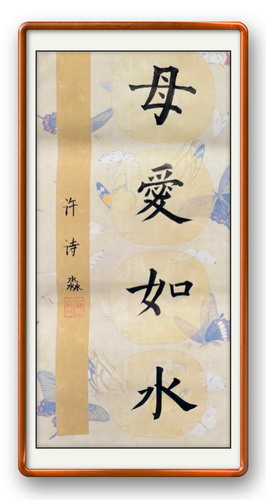 母愛如水
许诗淼